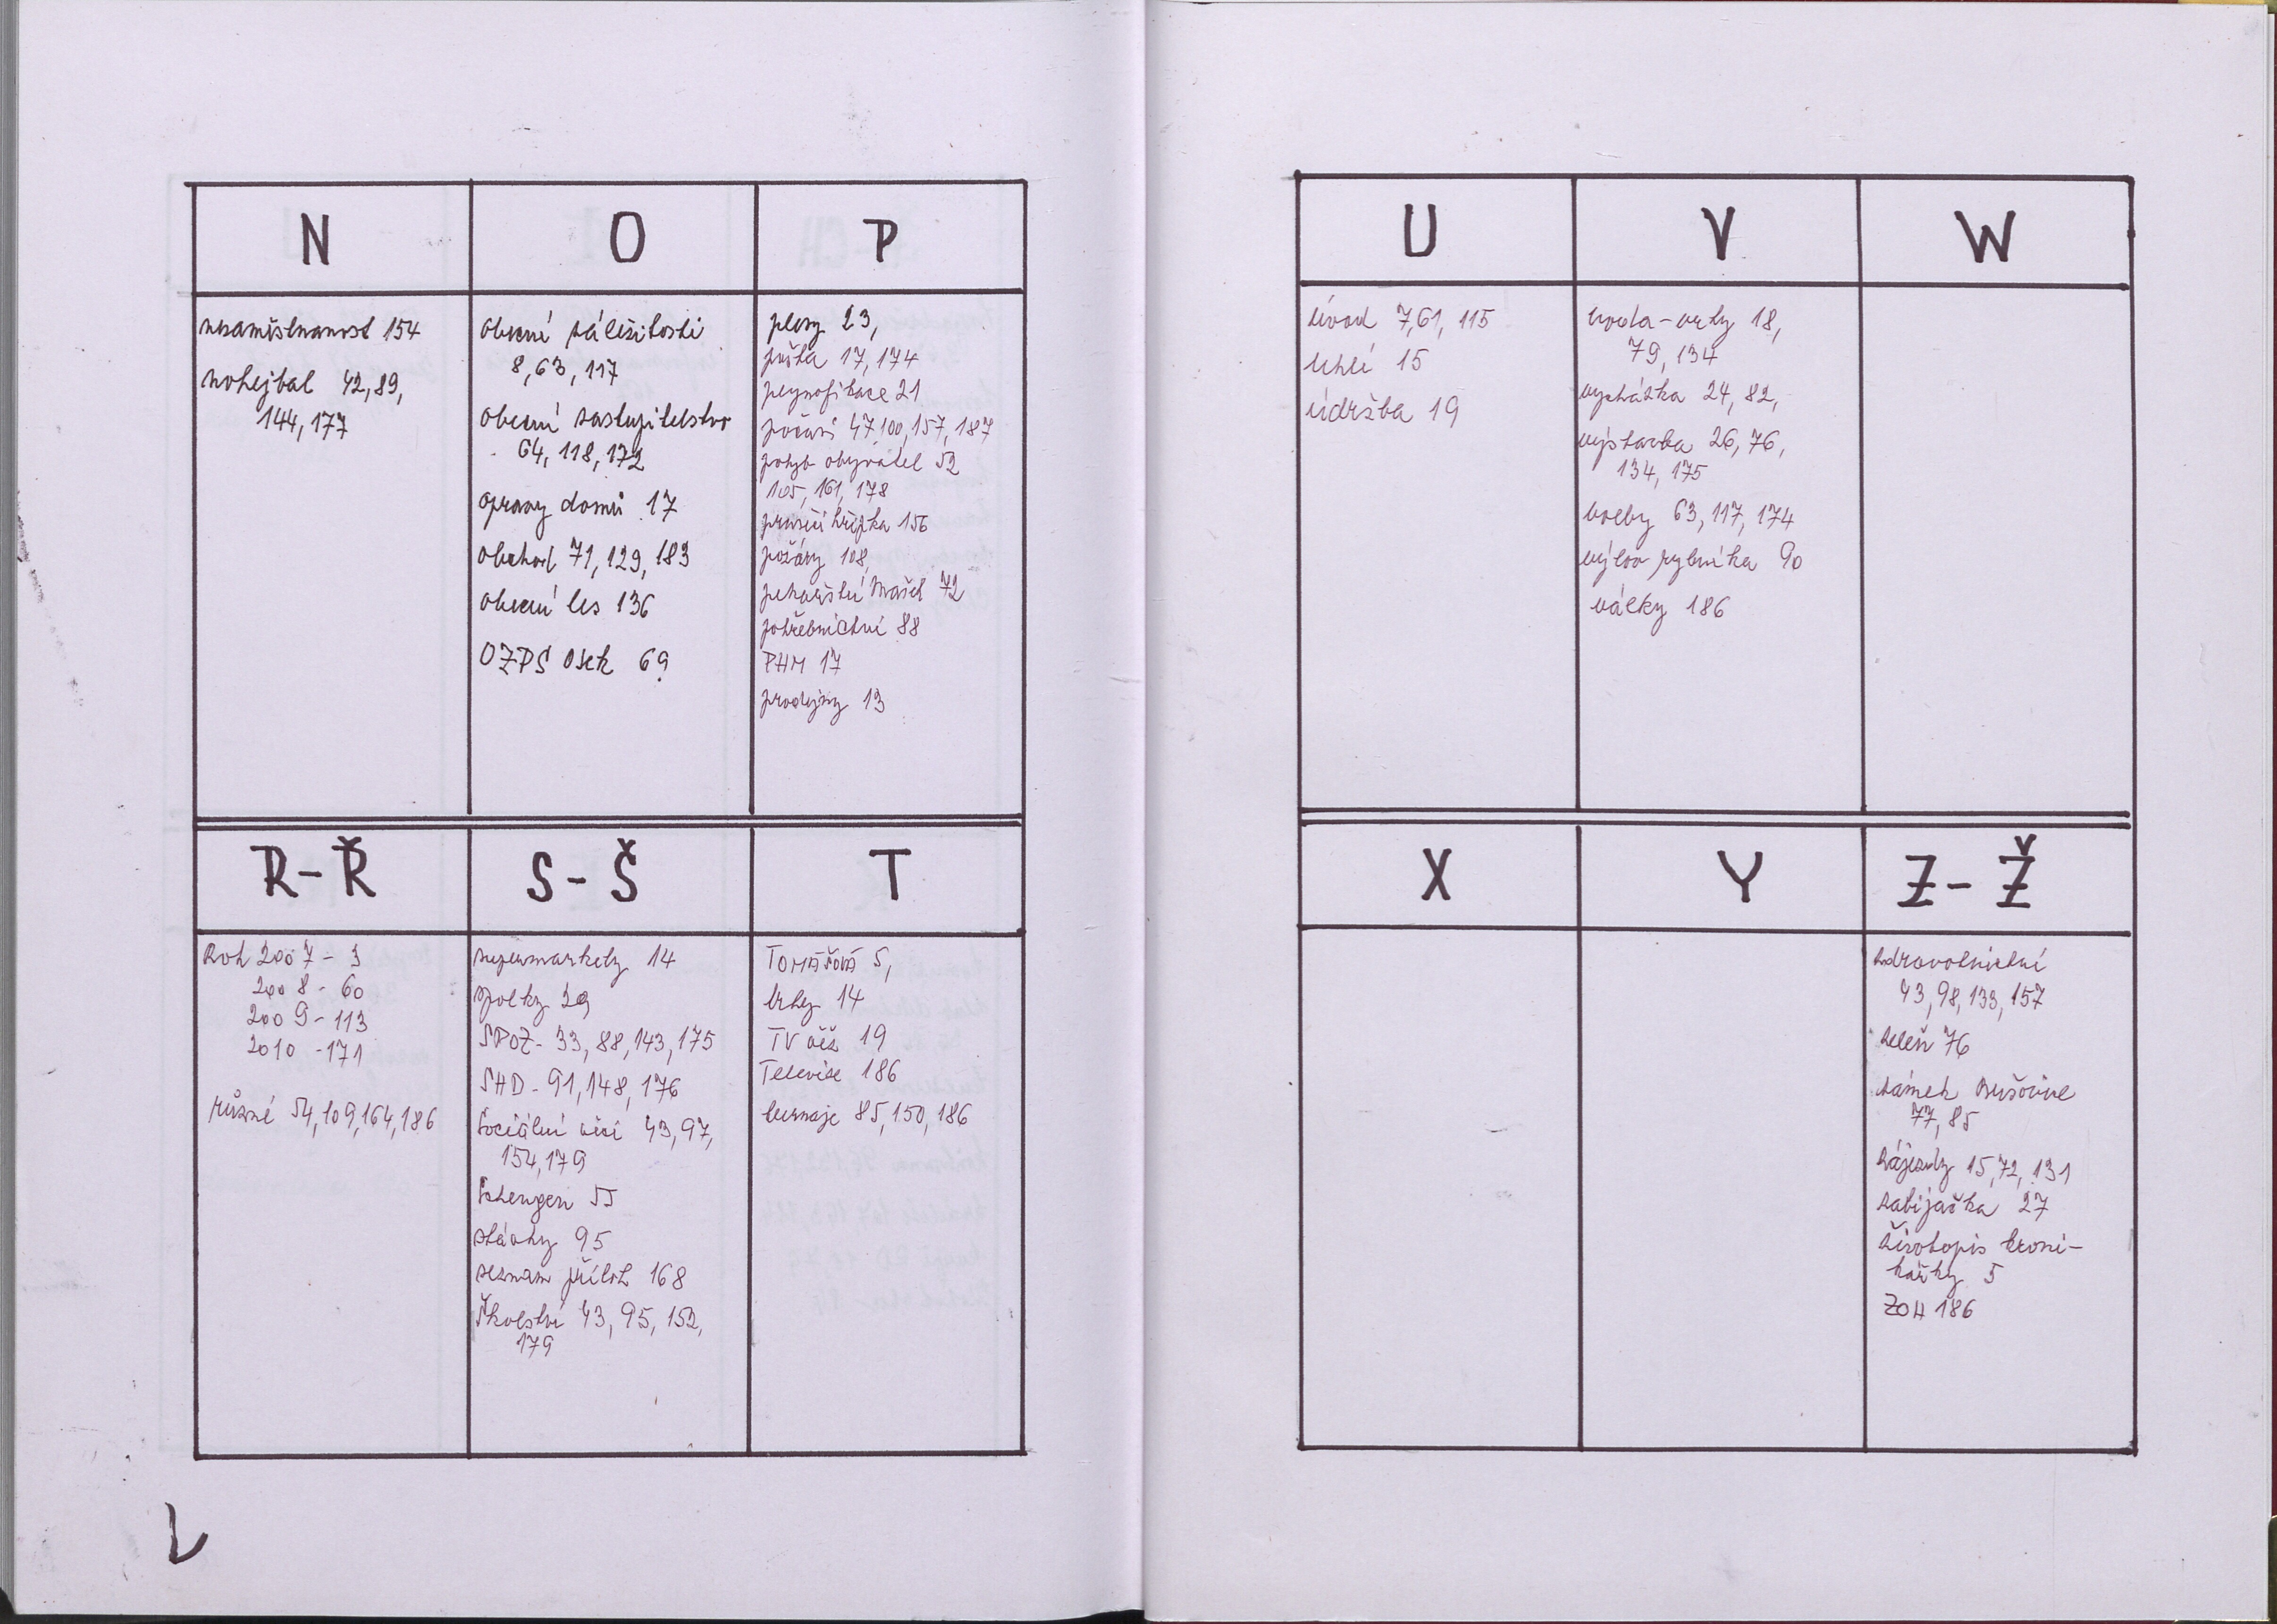 N
nezaměstnanost 154
nohejbal 42, 89,
144, 177
O
obecní záležitosti
8, 63, 117
obecní zastupitelstvo
64, 118, 172
opravy domů 17
obchod 71, 129, 183
obecní les 136
OZPS Osek 69
P
plesy 23,
pošta 17, 174
plynofikace 21
počasí 47, 100, 157, 187
pohyb obyvatel 52
105, 161, 178
prasečí chřipka 156
požáry 108,
pekařství Mašek 72
pohřebnictví 88
PHM 17
prodejny 13
R-Ř
Rok 2007 - 3
2008 - 60
2009 - 113
2010 - 171
různé 54, 109, 164, 186
S-Š
supermarkety 14
spolky 29
SPOZ - 33, 88, 143, 175
SHD - 91, 148, 176
Sociální věci 43, 97,
154, 179
Schengen 55
stávky 95
seznam příloh 168
Školství 43, 95, 152,
179
T
Tomášová 5,
trhy 14
TV věž 19
Televize 186
turnaje 85, 150, 186
U
úvod 7, 61, 115
uhlí 15
údržba 19
V
voda-vrty 18,
79, 134
vycházka 24, 82,
výstavba 26, 76,
134, 175
volby 63, 117, 174
výlov rybníka 90
války 186
W
X
Y
Z-Ž
zdravotnictví
43, 98, 133, 157
zeleň 76
zámek
77, 85
zájezdy 15, 72, 131
zabijačka 27
životopis kroni-
kářky 5
ZOH 186